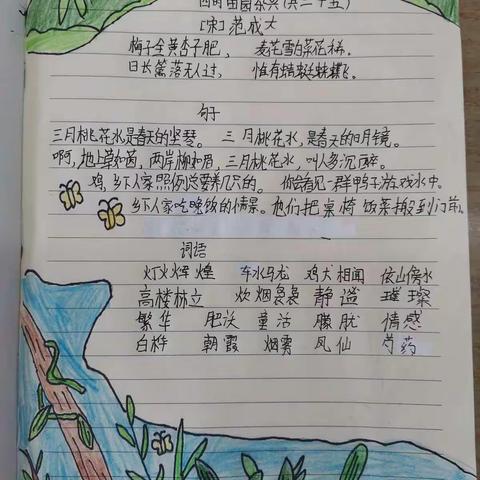 四时田园杂兴(其二十五)
[宋]范成大
梅子金黄杏子肥，麦花雪白菜花稀。
日长篱落无人过，惟有蜻蜓蛱蝶飞。
句子
三月桃花水,是春天的竖琴。三月桃花水,是春天的明镜。
啊,地上草如茵,两岸柳如眉,三月桃花水,叫人多沉醉。
鸡,乡下人家照例总要养几只的。你会看见一群鸭子游戏水中。
乡下人家吃晚饭的情景。他们把桌椅饭菜搬到门前。
词语
灯火辉煌 车水马龙 鸡犬相闻 依山傍水
高楼林立 炊烟袅袅 静谧 璀璨
繁华 肥沃 童话 朦胧 情感
白桦 朝霞 烟雾 凤仙 芍药